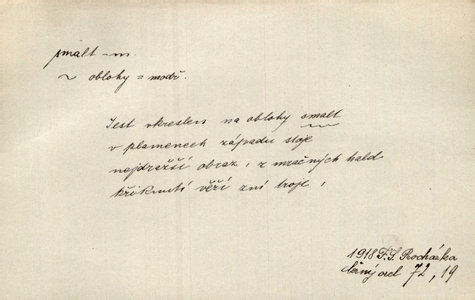 smalt -m.
~ oblohy = modř.
Jest vkreslen na oblohy smalt
v plamenech západu stoje
nejdražší obraz, z mračných hald
křiknutí věží zní troje,
1918 F. S. Procházka
černý orel 72, 19